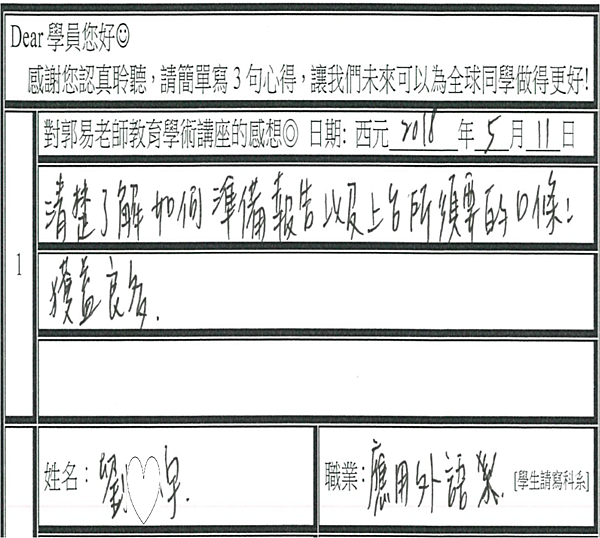 Dear 學員您好☺
感謝您認真聆聽，請簡單寫 3 句心得，讓我們未來可以為全球同學做得更好!
對郭易老師教育學術講座的感想◎ 日期: 西元 2018 年 5 月 11 日
清楚了解如何準備報告以及上台所須要的口條!
1
獲益良多.
姓名：劉♡宇.
職業: 應用外語系. [學生請寫科系]